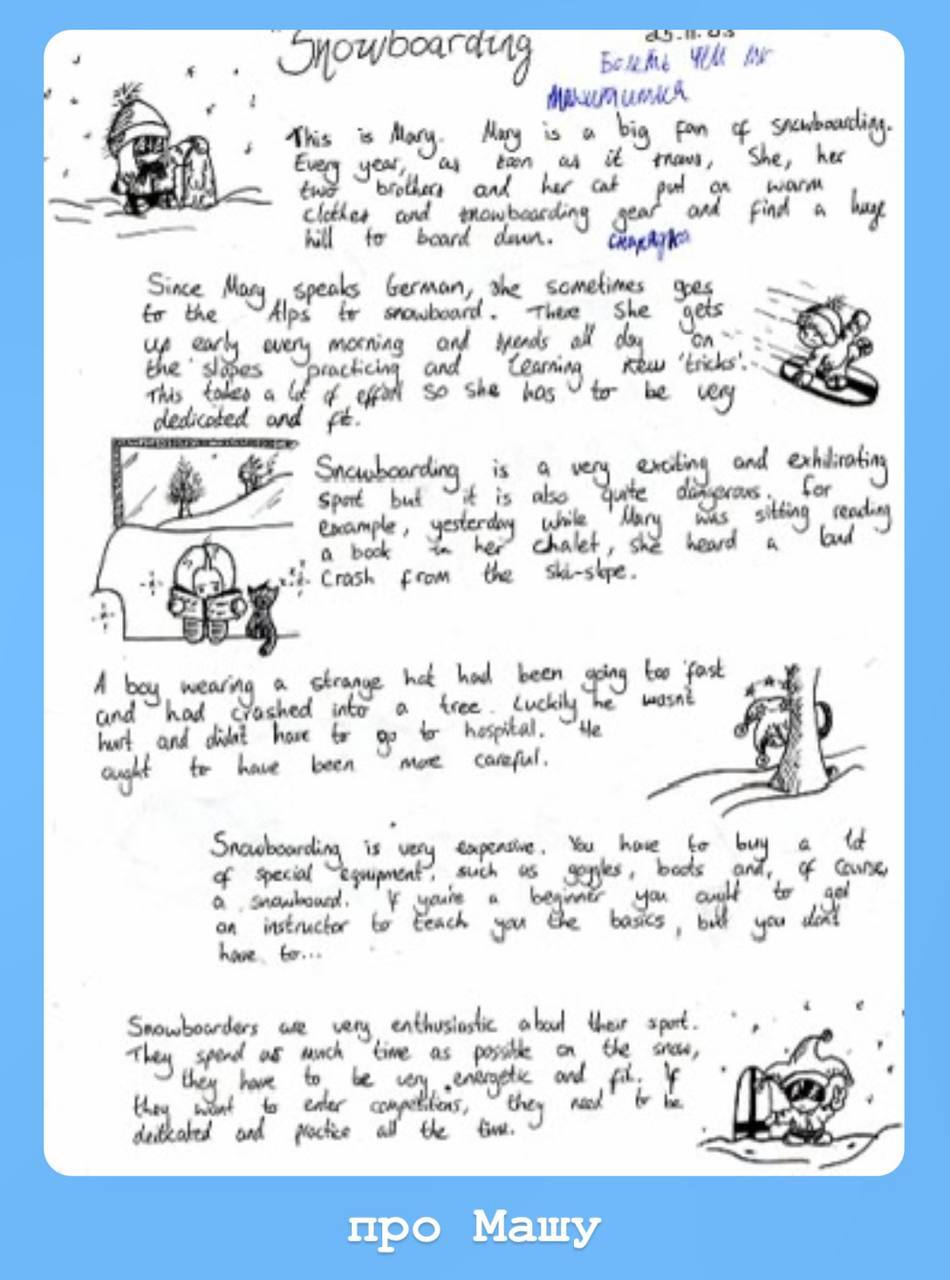 Snowboarding
This is Mary. Mary is a big fan of snowboarding.
Every year, as soon as it snows, She, her
two brothers and her cat put on warm
clothes and snowboarding gear and find a huge
hill to board down.
Since Mary speaks German, she sometimes goes
to the Alps to snowboard. There She gets
up early every morning and spends all day on
the slopes practicing and learning new 'tricks'.
This takes a lot of effort so she has to be very
dedicated and fit.
Snowboarding is a very exciting and exhilirating
sport but it is also quite dangerous. For
example, yesterday while Mary was sitting reading
a book in her chalet, she heard a loud
Crash from the ski-slope.
A boy wearing a strange hat had been going too fast
and had crashed into a tree. Luckily he wasnt
hurt and didn't have to go to hospital. He
ought to have been more careful.
Snowboarding is very expensive. You have to buy a lot
of special equipment, such as goggles, boots and, of course,
a snowboard. If you're a beginner you ought to get
an instructor to teach you the basics, but you don't
have to...
Snowboarders are very enthusiastic about their sport.
They spend as much time as possible on the snow,
they have to be very energetic and fit. If
they want to enter competitions, they need to be
dedicated and practice all the time.
про Машу